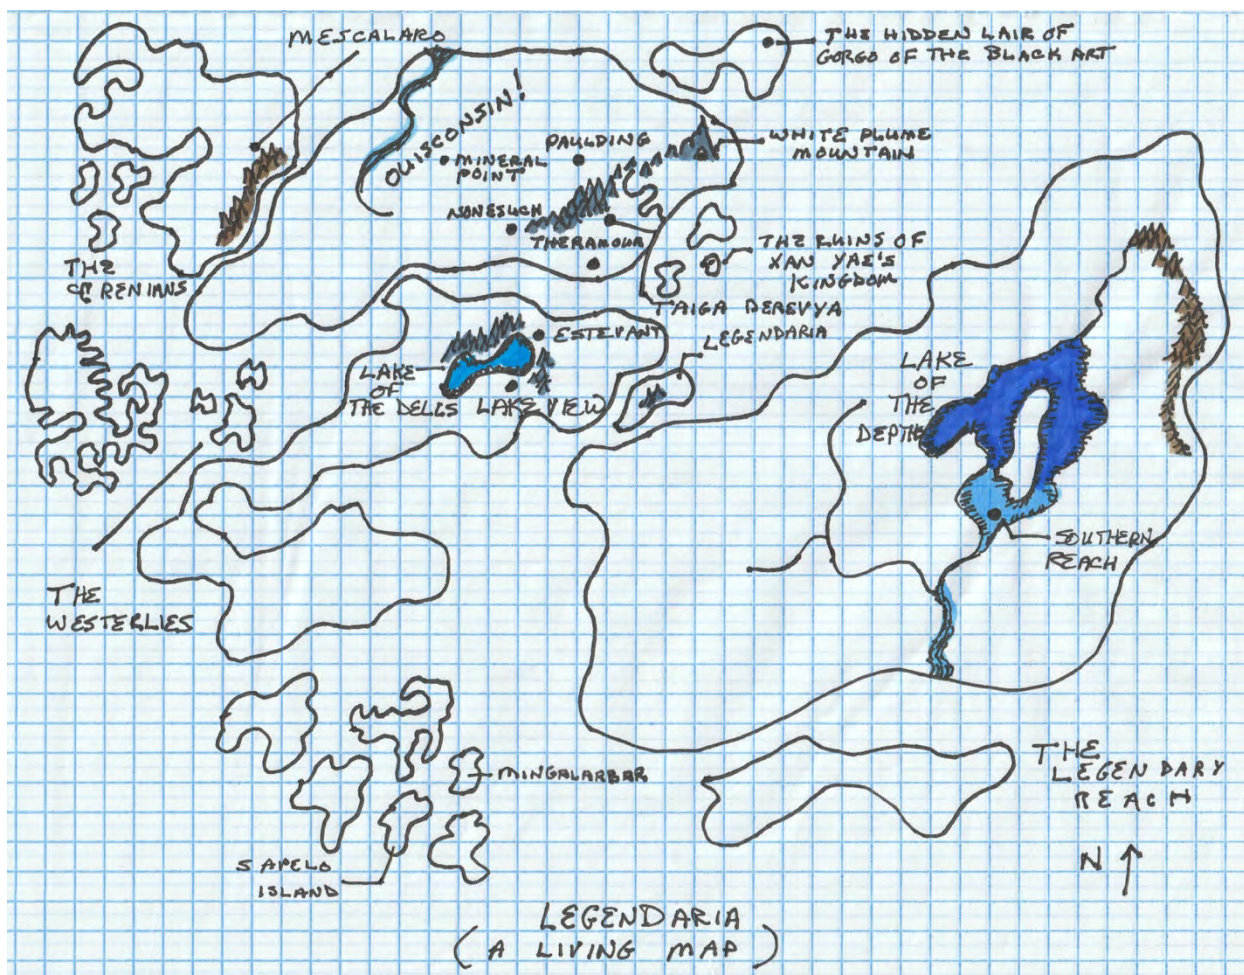 MESCALARO
THE HIDDEN LAIR OF
GORGO OF THE BLACK ART
OUISCONSIN!
PAULDING
WHITE PLUME
MOUNTAIN
MINERAL
POINT
NONESUCH
THERAMOUR
THE RUINS OF
XAN YAE'S
KINGDOM
THE
TAIGA DEREVYA
ESTEVANT
LEGENDARIA
LAKE
OF
THE DELLS
LAKE VIEW
LAKE
OF
THE
DEPTHS
SOUTHERN
REACH
THE
WESTERLIES
MINGALARBAR
THE
LEGENDARY
REACH
SAPELO
ISLAND
N
LEGENDARIA
(A LIVING MAP)